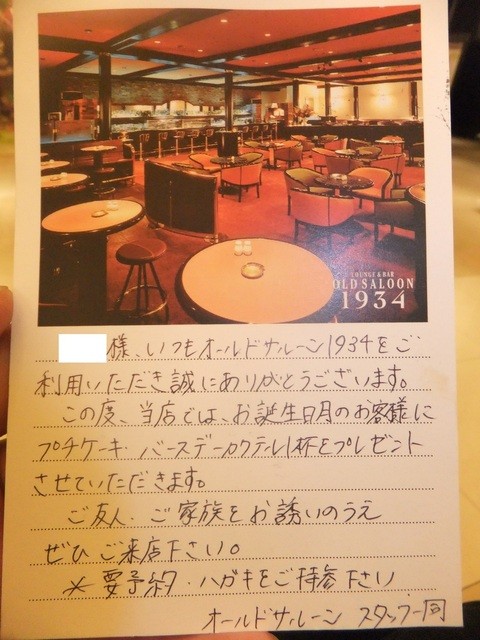 LOUNGE & BAR
OLD SALOON
1934
様、いつもオールドサルーン1934をご
利用いただき誠にありがとうございます。
この度、当店では、お誕生日月のお客様に
プチケーキ・バースデーカクテル1杯をプレゼント
させていただきます。
ご友人・ご家族をお誘いのうえ
ぜひご来店下さい。
* 要予約・ハガキをご持参下さい
オールドサルーン スタッフ一同